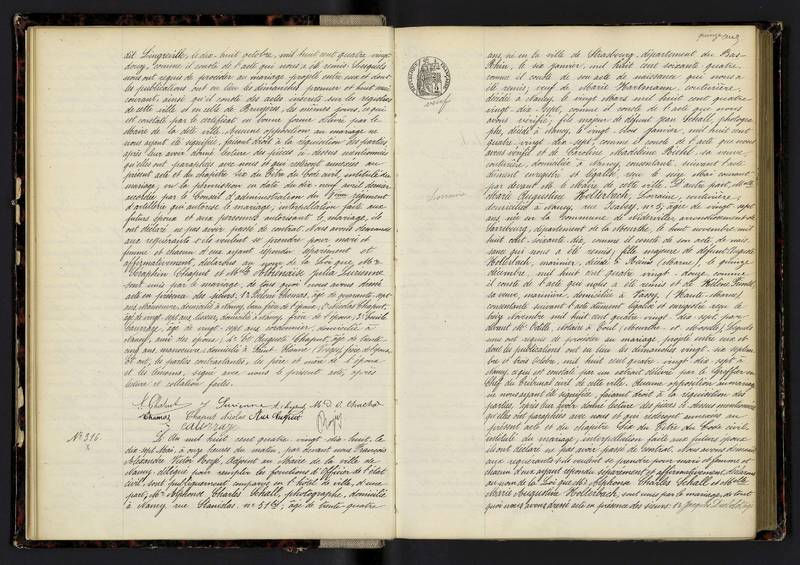 dit Lingreville, le dix huit octobre, mil huit cent quatre vingt
douze, comme il conste de l'acte qui nous a été remis. Lesquels
nous ont requis de procéder au mariage projeté entre eux et dont
les publications ont eu lieu les dimanches premier et huit mai
courant, ainsi qu'il conste des actes inscrits sur les registres
de cette ville et en celle de Bruyères, les mêmes jours, ce qui
est constaté par le certificat en bonne forme délivré par le
Maire de la dite ville. Aucune opposition au mariage ne
nous ayant été signifiée, faisant droit à la réquisition des parties
après leur avoir donné lecture des pièces ci dessus mentionnées
qu'elles ont paraphées avec nous et qui resteront annexées au
présent acte et du chapitre Six du Titre du Code civil, intitulé du
mariage, vu la permission en date du dix-neuf avril dernier
accordée par le Conseil d'administration du régiment
d'artillerie qui autorise le mariage, interpellation faite aux
futurs époux et aux personnes autorisant le mariage, ils
ont déclaré ne pas avoir passé de contrat. Nous avons demandé
aux requérants s'ils veulent se prendre pour mari et
femme et chacun d'eux ayant répondu séparément et
affirmativement, déclarons au nom de la Loi que Mr
Séraphin Chaput et Melle Julia Lurienne
sont unis par le mariage, de tout quoi nous avons dressé
acte en présence des sieurs: 1° Thomas, âgé de quarante-sept
ans, manoeuvre, domicilié à Nancy, de l'époux; 2° Nicolas Chaput,
âgé de vingt-sept ans, domicilié à Nancy, frère de l'époux; 3° Emile
Cauvray, âgé de vingt-sept ans, cordonnier, domicilié à
Nancy, ami des époux; 4° et Auguste Chaput, âgé de trente-
cinq ans, manoeuvre, domicilié à Saint (Vosges), frère de l'époux
Et ont, les parties contractantes, les père et mère de l'époux
et les témoins, signé avec nous le présent acte, après
lecture et collation faites.
Chaput J Lurienne Chuchet
Thomas Chaput Nicolas Auguste
Cauvray
N° 316.
L'An mil huit cent quatre vingt dix-huit, le
dix sept Mai, à onze heures du matin, par devant nous François
Alexandre Victor, Adjoint au Maire de la ville de
Nancy, délégué pour remplir les fonctions d'Officier de l'état
civil, sont publiquement comparus en l'hôtel de ville, d'une
part, Mr Alphonse Charles Schall, photographe, domicilié
à Nancy rue Stanislas, n° 51, âgé de trente-quatre
veuf
Lorraine
ans, né en la ville de Strasbourg, département du Bas-
Rhin, le six janvier, mil huit cent soixante quatre,
comme il conste de son acte de naissance qui nous a
été remis; veuf de Marie Hartmann, couturière,
décédée à Nancy, le vingt Mars mil huit cent quatre
vingt dix sept, comme il conste de l'acte que nous
avons vérifié; fils majeur de défunt Jean Schall, photogra-
phe, décédé à Nancy, le vingt trois janvier, mil huit cent
quatre vingt dix sept, comme il conste de l'acte que nous
avons vérifié et de Caroline Madeleine, sa veuve,
rentière, domiciliée à Nancy, consentante, suivant l'acte
dûment enregistré et légalisé, reçu le seize Mai courant
par devant Mr le Maire de cette ville. D'autre part, Melle
Marie Augustine Hollerbach, Lorraine, couturière,
domiciliée à Nancy, rue Isabey, n° 5, âgée de vingt sept
ans, née en la Commune de Niderviller arrondissement de
Sarrebourg, département de la Meurthe, le huit novembre, mil
huit cent soixante dix, comme il conste de son acte de nais-
sance qui nous a été remis; fille majeure de défunt Auguste
Hollerbach, marinier, décédé à Reims (Marne), le
décembre, mil huit cent quatre vingt-douze, comme
il conste de l'acte qui nous a été remis et de Hélène,
sa veuve, marinière, domiciliée à (Haute-Marne)
consentante suivant l'acte dûment légalisé et enregistré reçu le
Novembre mil huit cent quatre vingt dix-sept par
devant Me, notaire à Toul (Meurthe-et-Moselle). Lesquels
nous ont requis de procéder au mariage projeté entre eux et
dont les publications ont eu lieu les dimanches vingt six septem-
bre et trois Octobre, mil huit cent quatre vingt dix-sept à
Nancy, ce qui est constaté par un extrait délivré par le Greffier en
Chef du Tribunal civil de cette ville. Aucune opposition au mariage
ne nous ayant été signifiée, faisant droit à la réquisition des
parties, après leur avoir donné lecture des pièces ci dessus mentionnées
qu'elles ont paraphées avec nous et qui resteront annexées au
présent acte et du chapitre Six du Titre du Code civil,
intitulé du mariage, interpellation faite aux futurs époux
ils ont déclaré ne pas avoir passé de contrat. Nous avons demandé
aux requérants s'ils veulent se prendre pour mari et femme et
chacun d'eux ayant répondu séparément et affirmativement, déclarons
au nom de la Loi que Mr Alphonse Charles Schall et Melle
Marie Augustine Hollerbach, sont unis par le mariage, de tout
quoi nous avons dressé acte en présence des sieurs: 1° Joseph